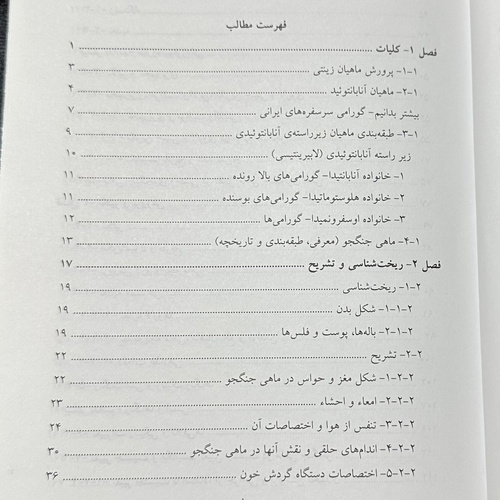 فهرست مطالب
فصل ۱- کلیات ۱
۱-۱- پرورش ماهیان زینتی ۳
۲-۱- ماهیان آنابانتوئید ۴
بیشتر بدانیم- گورامی سرسفره‌های ایرانی ۷
۳-۱- طبقه‌بندی ماهیان زیرراسته‌ی آنابانتوئیدی ۹
زیر راسته آنابانتوئیدی (لابیرینتیسی) ۱۰
۱- خانواده آنابانتیدا- گورامی‌های بالا رونده ۱۱
۲- خانواده هلوستوماتیدا- گورامی‌های بوسنده ۱۱
۳- خانواده اوسفرونمیدا- گورامی‌ها ۱۲
۴-۱- ماهی جنگجو (معرفی، طبقه‌بندی و تاریخچه) ۱۳
فصل ۲- ریخت‌شناسی و تشریح ۱۷
۱-۲- ریخت‌شناسی ۱۹
۱-۱-۲- شکل بدن ۱۹
۲-۱-۲- باله‌ها، پوست و فلس‌ها ۱۹
۲-۲- تشریح ۲۲
۱-۲-۲- شکل مغز و حواس در ماهی جنگجو ۲۲
۲-۲-۲- امعاء و احشاء ۲۳
۳-۲-۲- تنفس از هوا و اختصاصات آن ۲۴
۴-۲-۲- اندام‌های حلقی و نقش آنها در ماهی جنگجو ۳۰
۵-۲-۲- اختصاصات دستگاه گردش خون ۳۶